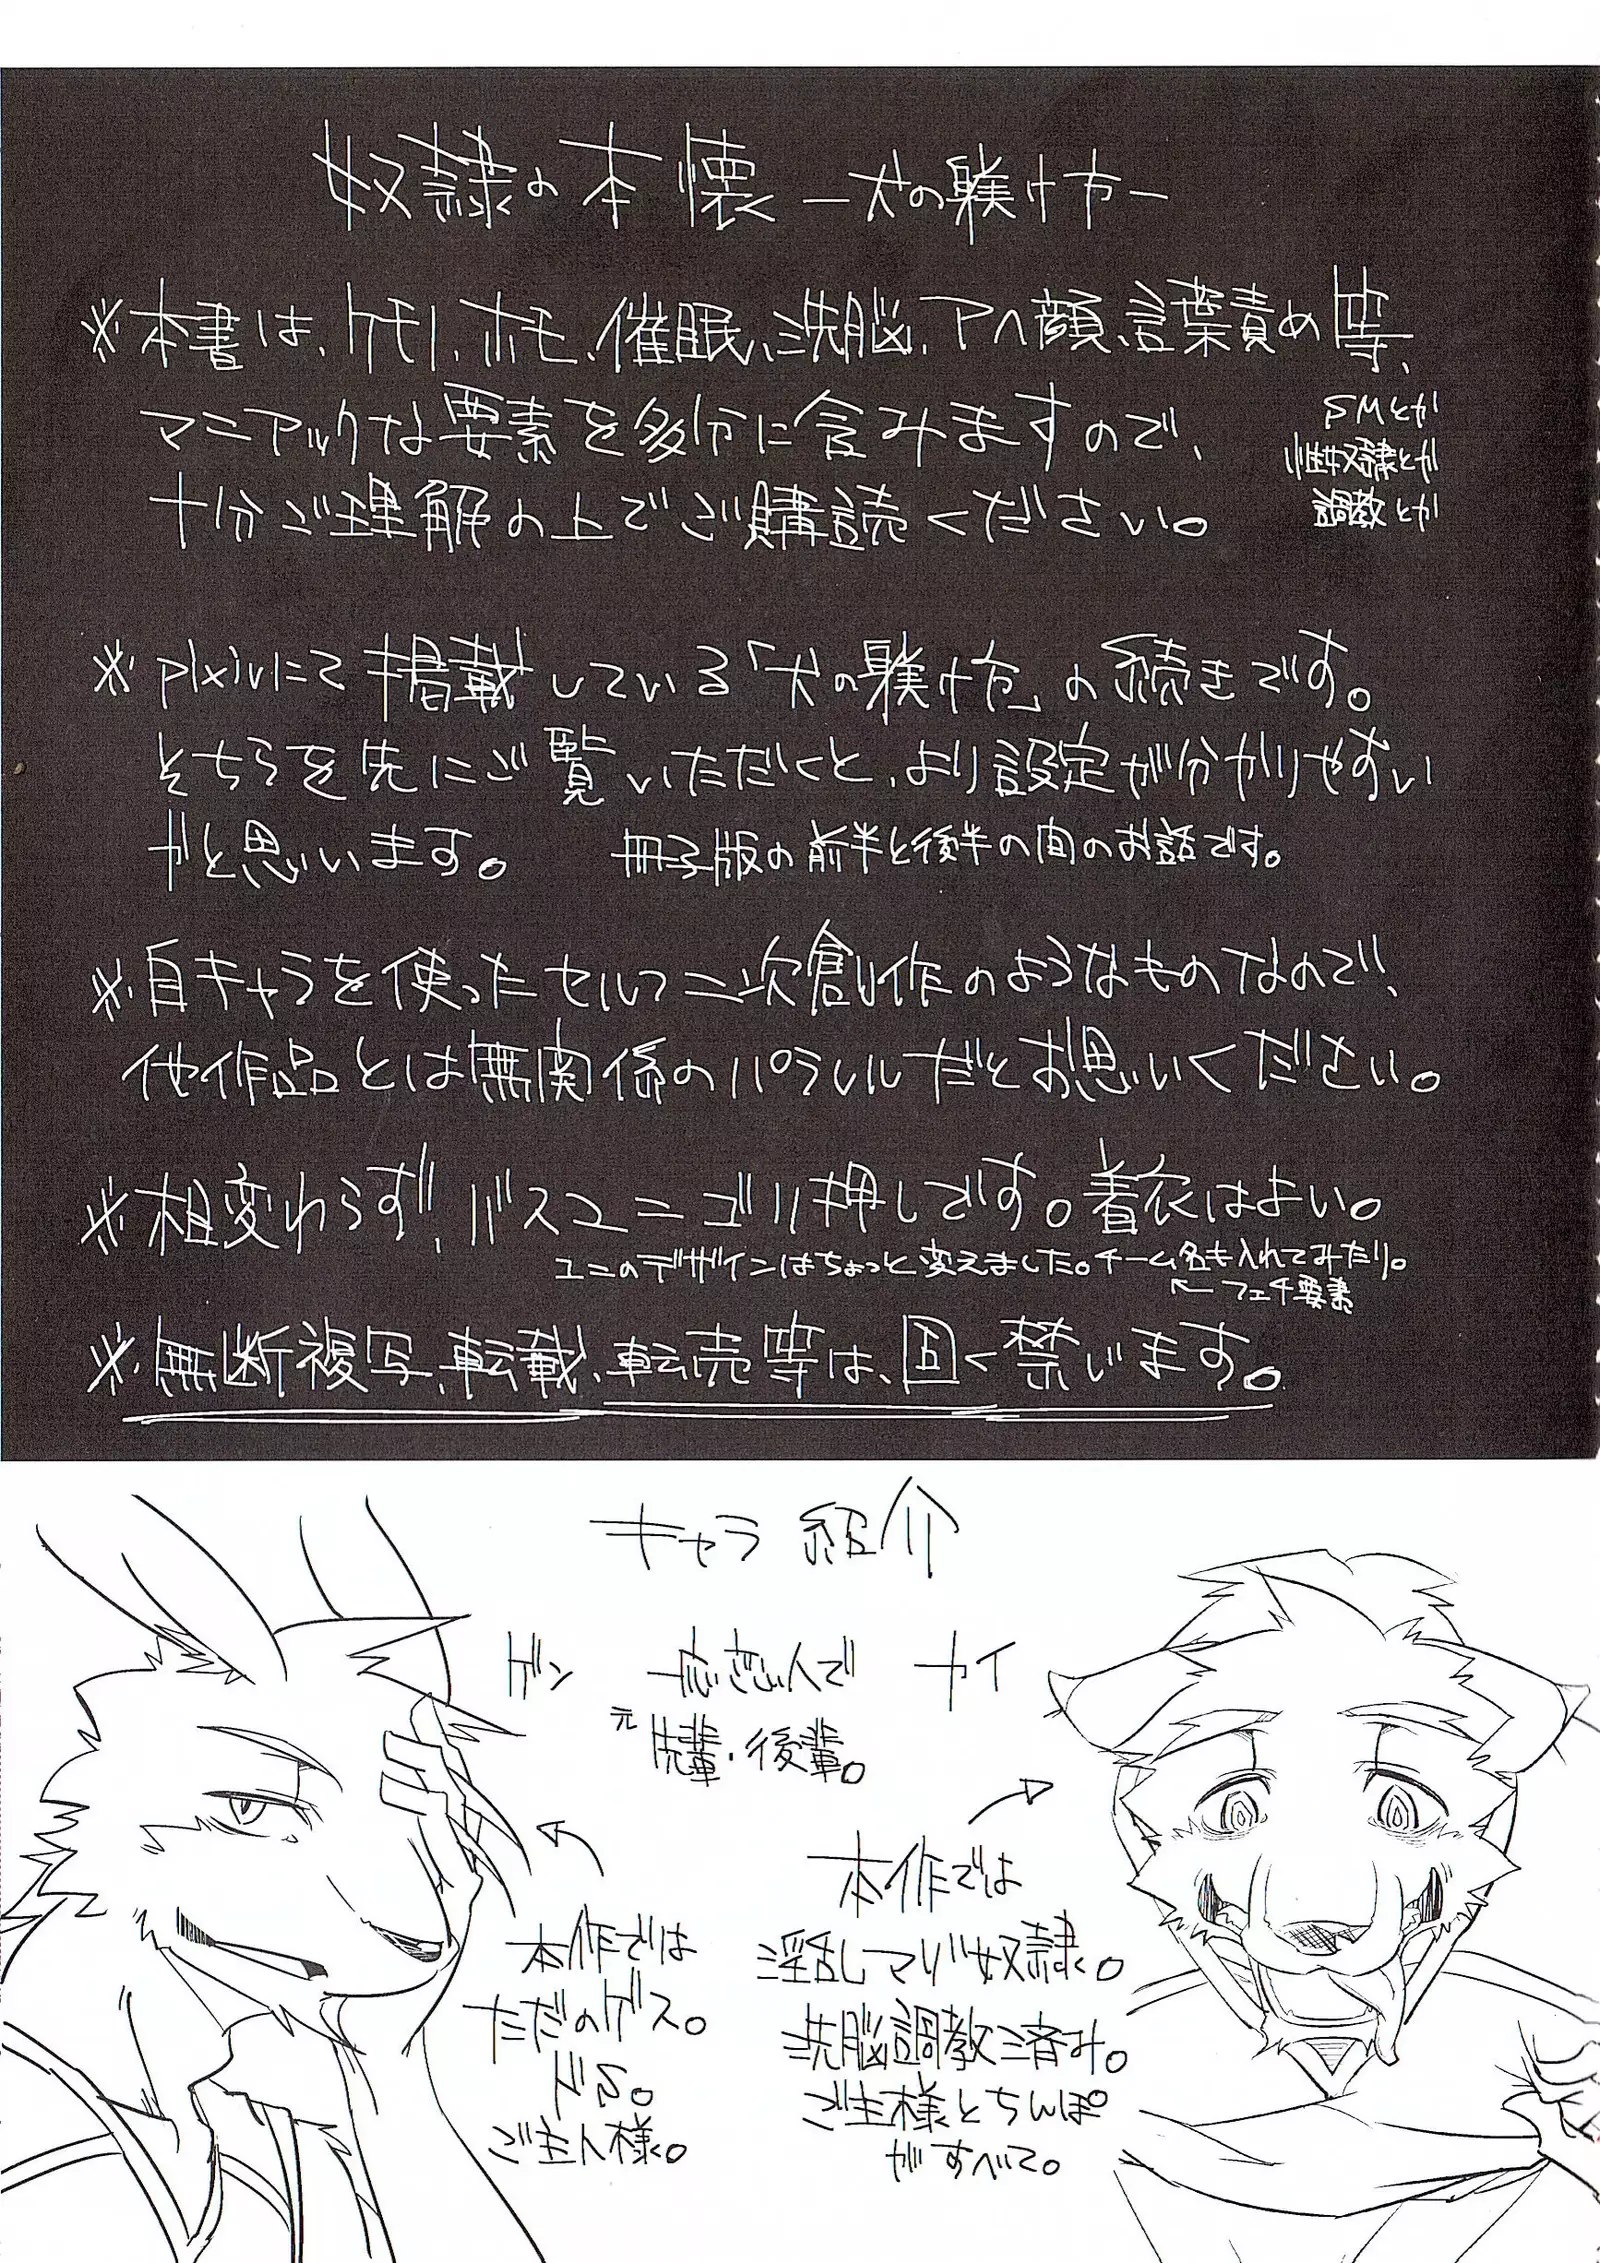 奴隷の本懐 ―犬の躾け方―
※本書は、ケモノ、ホモ、催眠、洗脳、アヘ顔、言葉責め等、
マニアックな要素を多分に含みますので、
SMとか
性奴隷とか
調教とか
十分ご理解の上でご購読ください。
※pixivにて掲載している「犬の躾け方」の続きです。
そちらを先にご覧いただくと、より設定が分かりやすい
かと思います。 冊子版の前半と後半の間のお話です。
※自キャラを使ったセルフ二次創作のようなものなので、
他作品とは無関係のパラレルだとお思いください。
※相変わらず、バスユニゴリ押しです。着衣はよい。
ユニのデザインはちょっと変えました。チーム名も入れてみたり。
←フェチ要素
※無断複写、転載、転売等は、固く禁じます。
キャラ紹介
ゲン 一応恋人で カイ
元先輩・後輩。
本作では
ただのゲス。
ドS。
ご主人様。
本作では
淫乱しマゾ奴隷。
洗脳調教済み。
ご主様とちんぽ
がすべて。